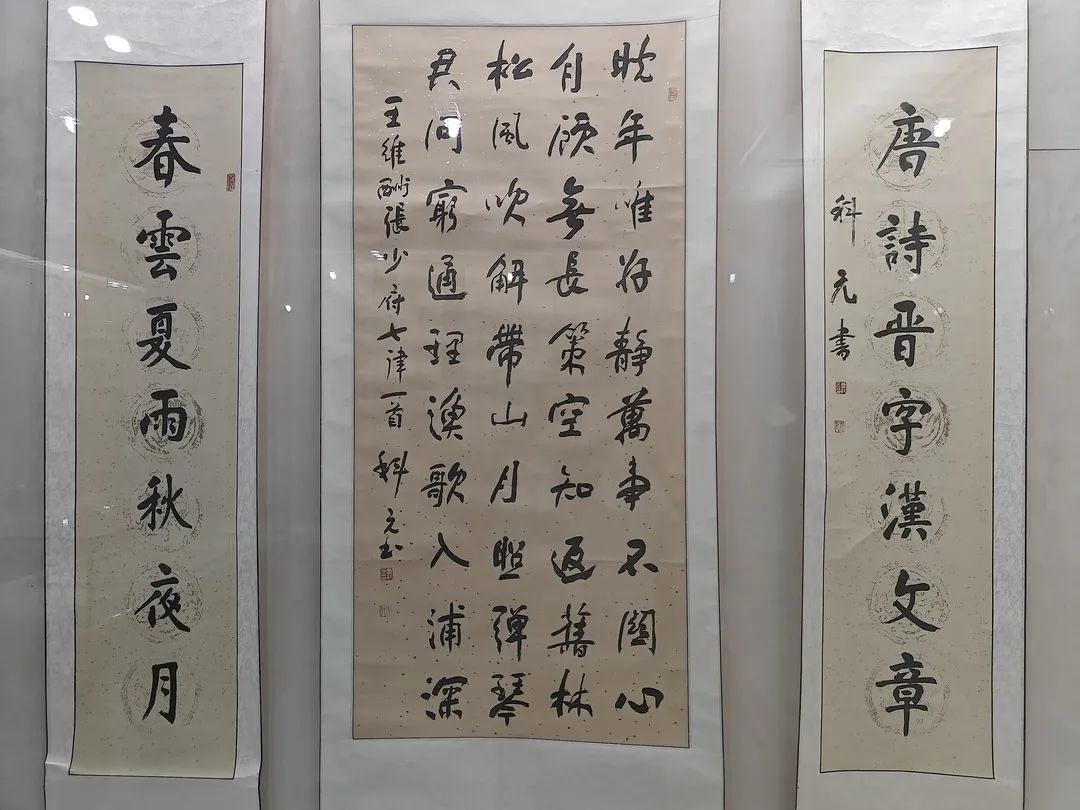 唐詩晋字漢文章
科元書
晚年唯好静萬事不關心
自顧無長策空知返舊林
松風吹解帶山月照彈琴
君问窮通理漁歌入浦深
王維酬張少府七律一首 科元书
春雲夏雨秋夜月